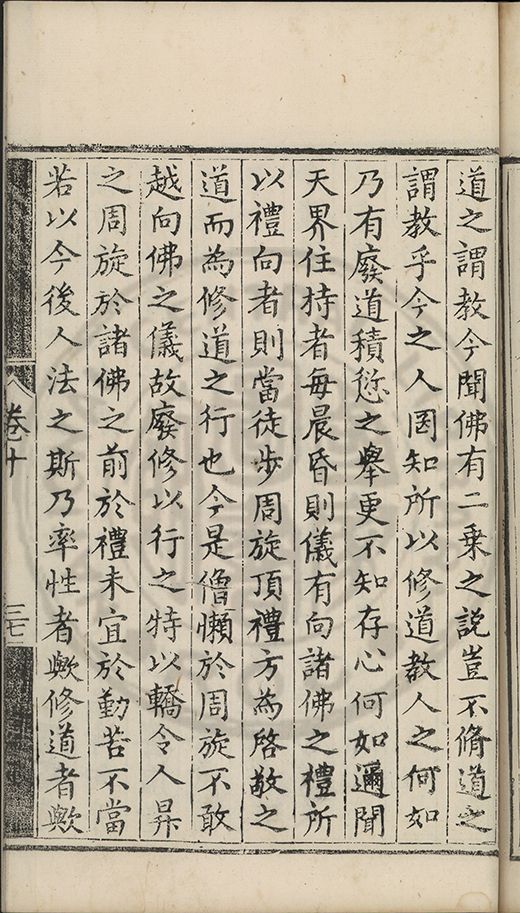 道之謂教今聞佛有二乗之説豈不脩道之
謂教乎今之人罔知所以修道教人之何如
乃有廢道積愆之舉更不知存心何如邇聞
天界住持者每晨昏則儀有向諸佛之禮所
以禮向者則當徒步周旋頂禮方為啓敬之
道而為修道之行也今是僧懶於周旋不敢
越向佛之儀故廢修以行之特以轎令人舁
之周旋於諸佛之前於禮未宜於勤苦不當
若以今後人法之斯乃率性者歟修道者歟
卷十
三七